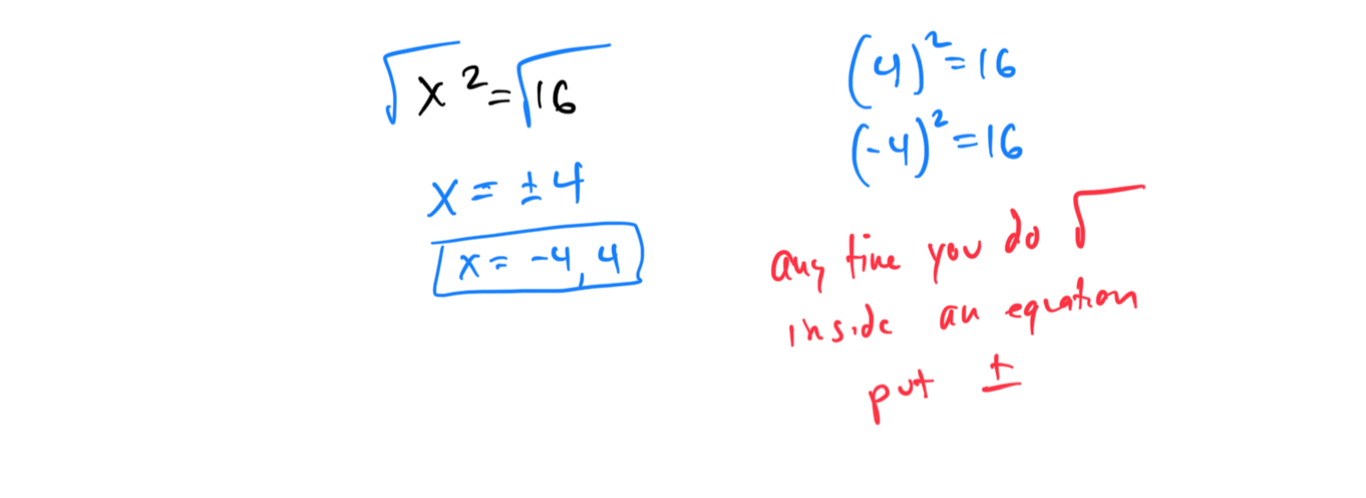 √x² = √16
x = ± 4
x = -4, 4
(4)² = 16
(-4)² = 16
any time you do √
inside an equation
put ±